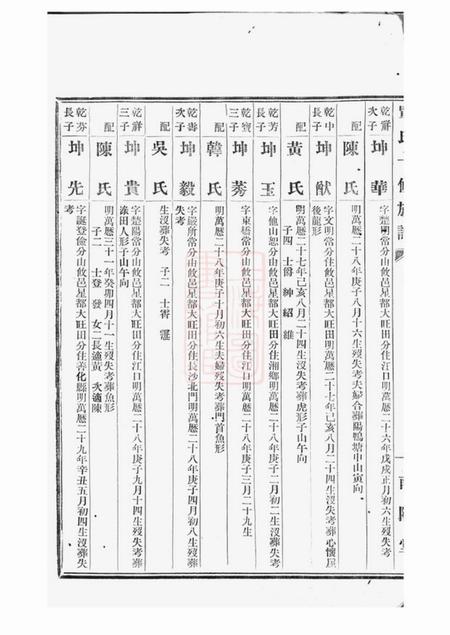 乾辭次子 坤華 字楚開當分山攸邑星都大旺田分住江口明萬歷二十六年戊戌正月初六生歿失考
配 陳氏 明萬歷二十八年庚子八月十六生歿失考夫婦合葬陽鴨塘中山寅向
乾中長子 坤猷 字文明當分住攸邑星都大旺田明萬歷二十七年己亥八月二十四生沒失考葬心懷屋
後龍形
配 黃氏 明萬歷二十七年己亥八月二十四生沒失考葬虎形子山午向
子四 士爵 紳 紹 維
乾芳長子 坤玉 字他山恕分山攸邑星都大旺田分住湘鄉明萬歷二十八年庚子二月初二生沒失考
乾寶三子 坤莠 字東橋當分山攸邑星都大旺田分住江口明萬歷二十八年庚子三月二十九生
配 韓氏 明萬歷二十八年庚子十月初六生夫婦歿失考葬門首魚形
乾壽次子 坤毅 字嚴所當分山攸邑星都大旺田分住長沙北門明萬歷二十八年庚子四月初八生歿葬
失考
配 吳氏 生沒葬失考 子二 士
乾辭三子 坤貴 字楚陽當分山攸邑星都大旺田分住江口明萬歷二十八年庚子九月十四生歿失考葬
人形子山午向
配 陳氏 明萬歷三十一年癸卯四月十一生歿失考葬魚形
子二 士登 發 女二長適黃 次適陳
乾芬長子 坤先 字誕登儉分山攸邑星都大旺田分住善化縣明萬歷二十九年辛丑五月初四生沒葬失
考